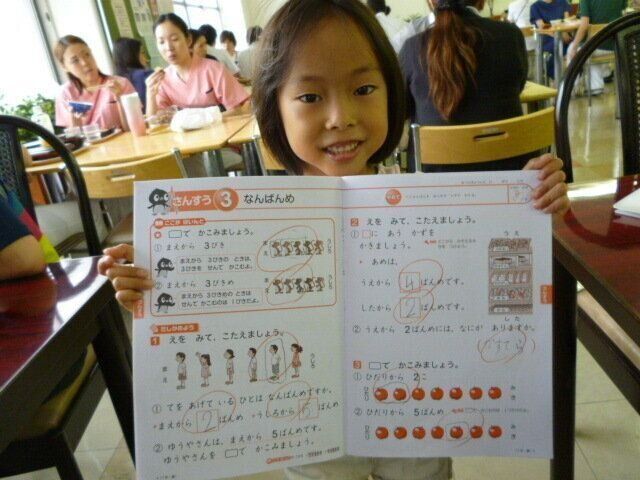 さんすう 3 なんばんめ
□で かこみましょう。
① まえから 3びき
まえから 3びきの ときは
3びきを せんで かこむよ。
② まえから 3びきめ
まえから 3びきめの ときは
せんで かこむのは 1ぴきだよ。
たしかめよう
1 えを みて、こたえましょう。
① てを あげて いる ひとは なんばんめですか。
まえから 2 ばんめ うしろから 5 ばんめ
② ゆうやさんは、まえから 5ばんめです。
ゆうやさんを □で かこみましょう。
2 えを みて、こたえましょう。
① □に あう かずを
かきましょう。
あめは、
うえから 4 ばんめです。
したから 2 ばんめです。
② うえから 2ばんめには、なにが ありますか。
うえ
した
3 □で かこみましょう。
① ひだりから 2こ
ひだり
みぎ
② ひだりから 5ばんめ
ひだり
みぎ